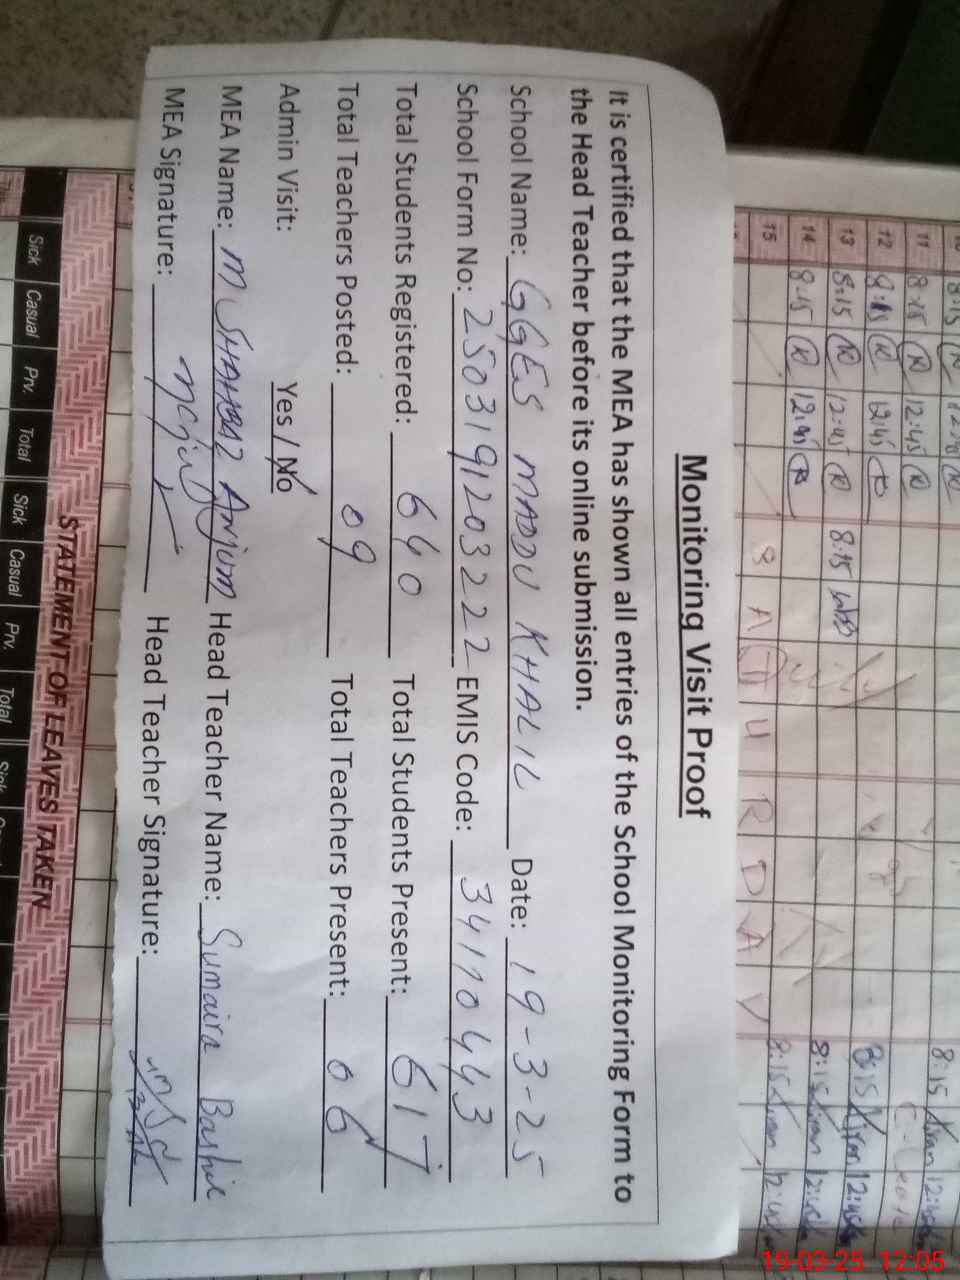 Monitoring Visit Proof
It is certified that the MEA has shown all entries of the School Monitoring Form to
the Head Teacher before its online submission.
School Name: GGES MADDU KHALIL Date: 19-3-25
School Form No: 2503191203222 EMIS Code: 34110443
Total Students Registered: 640 Total Students Present: 617
Total Teachers Posted: 09 Total Teachers Present: 06
Admin Visit: Yes / No
MEA Name: M SHAHBAZ Anjum Head Teacher Name: Sumaira Bashir
MEA Signature: Head Teacher Signature:
11 8:15 (R) 12:45 (R) 8:15 12:45
12 8:15 (R) 12:45 (R)
13 8:15 (R) 12:45 (R) 8:15 8:15 12:45
14 8:15 (R) 12:45 (R) 8:15
15 SATURDAY 8:15
STATEMENT OF LEAVES TAKEN
Sick Casual Prv. Total Sick Casual Prv. Total Sick
19-03-25 12:05